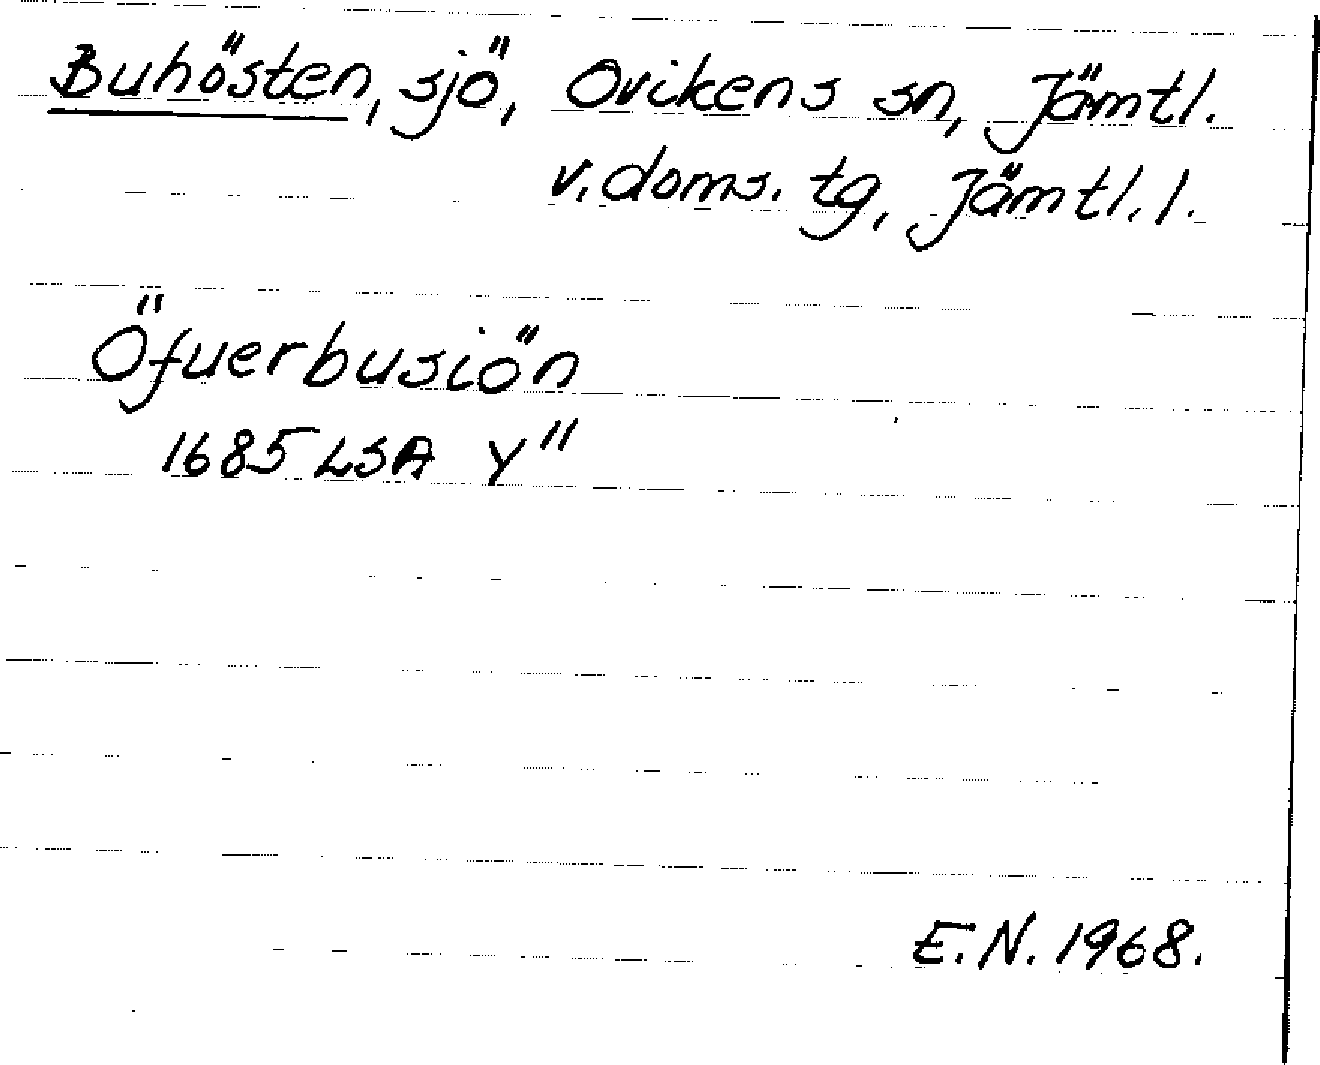 Buhösten, sjö, Ovikens sn, Jämtl.
v. doms. tg, Jämtl. l.
Öfuerbusiön
1685 LSA Y"
E.N. 1968.